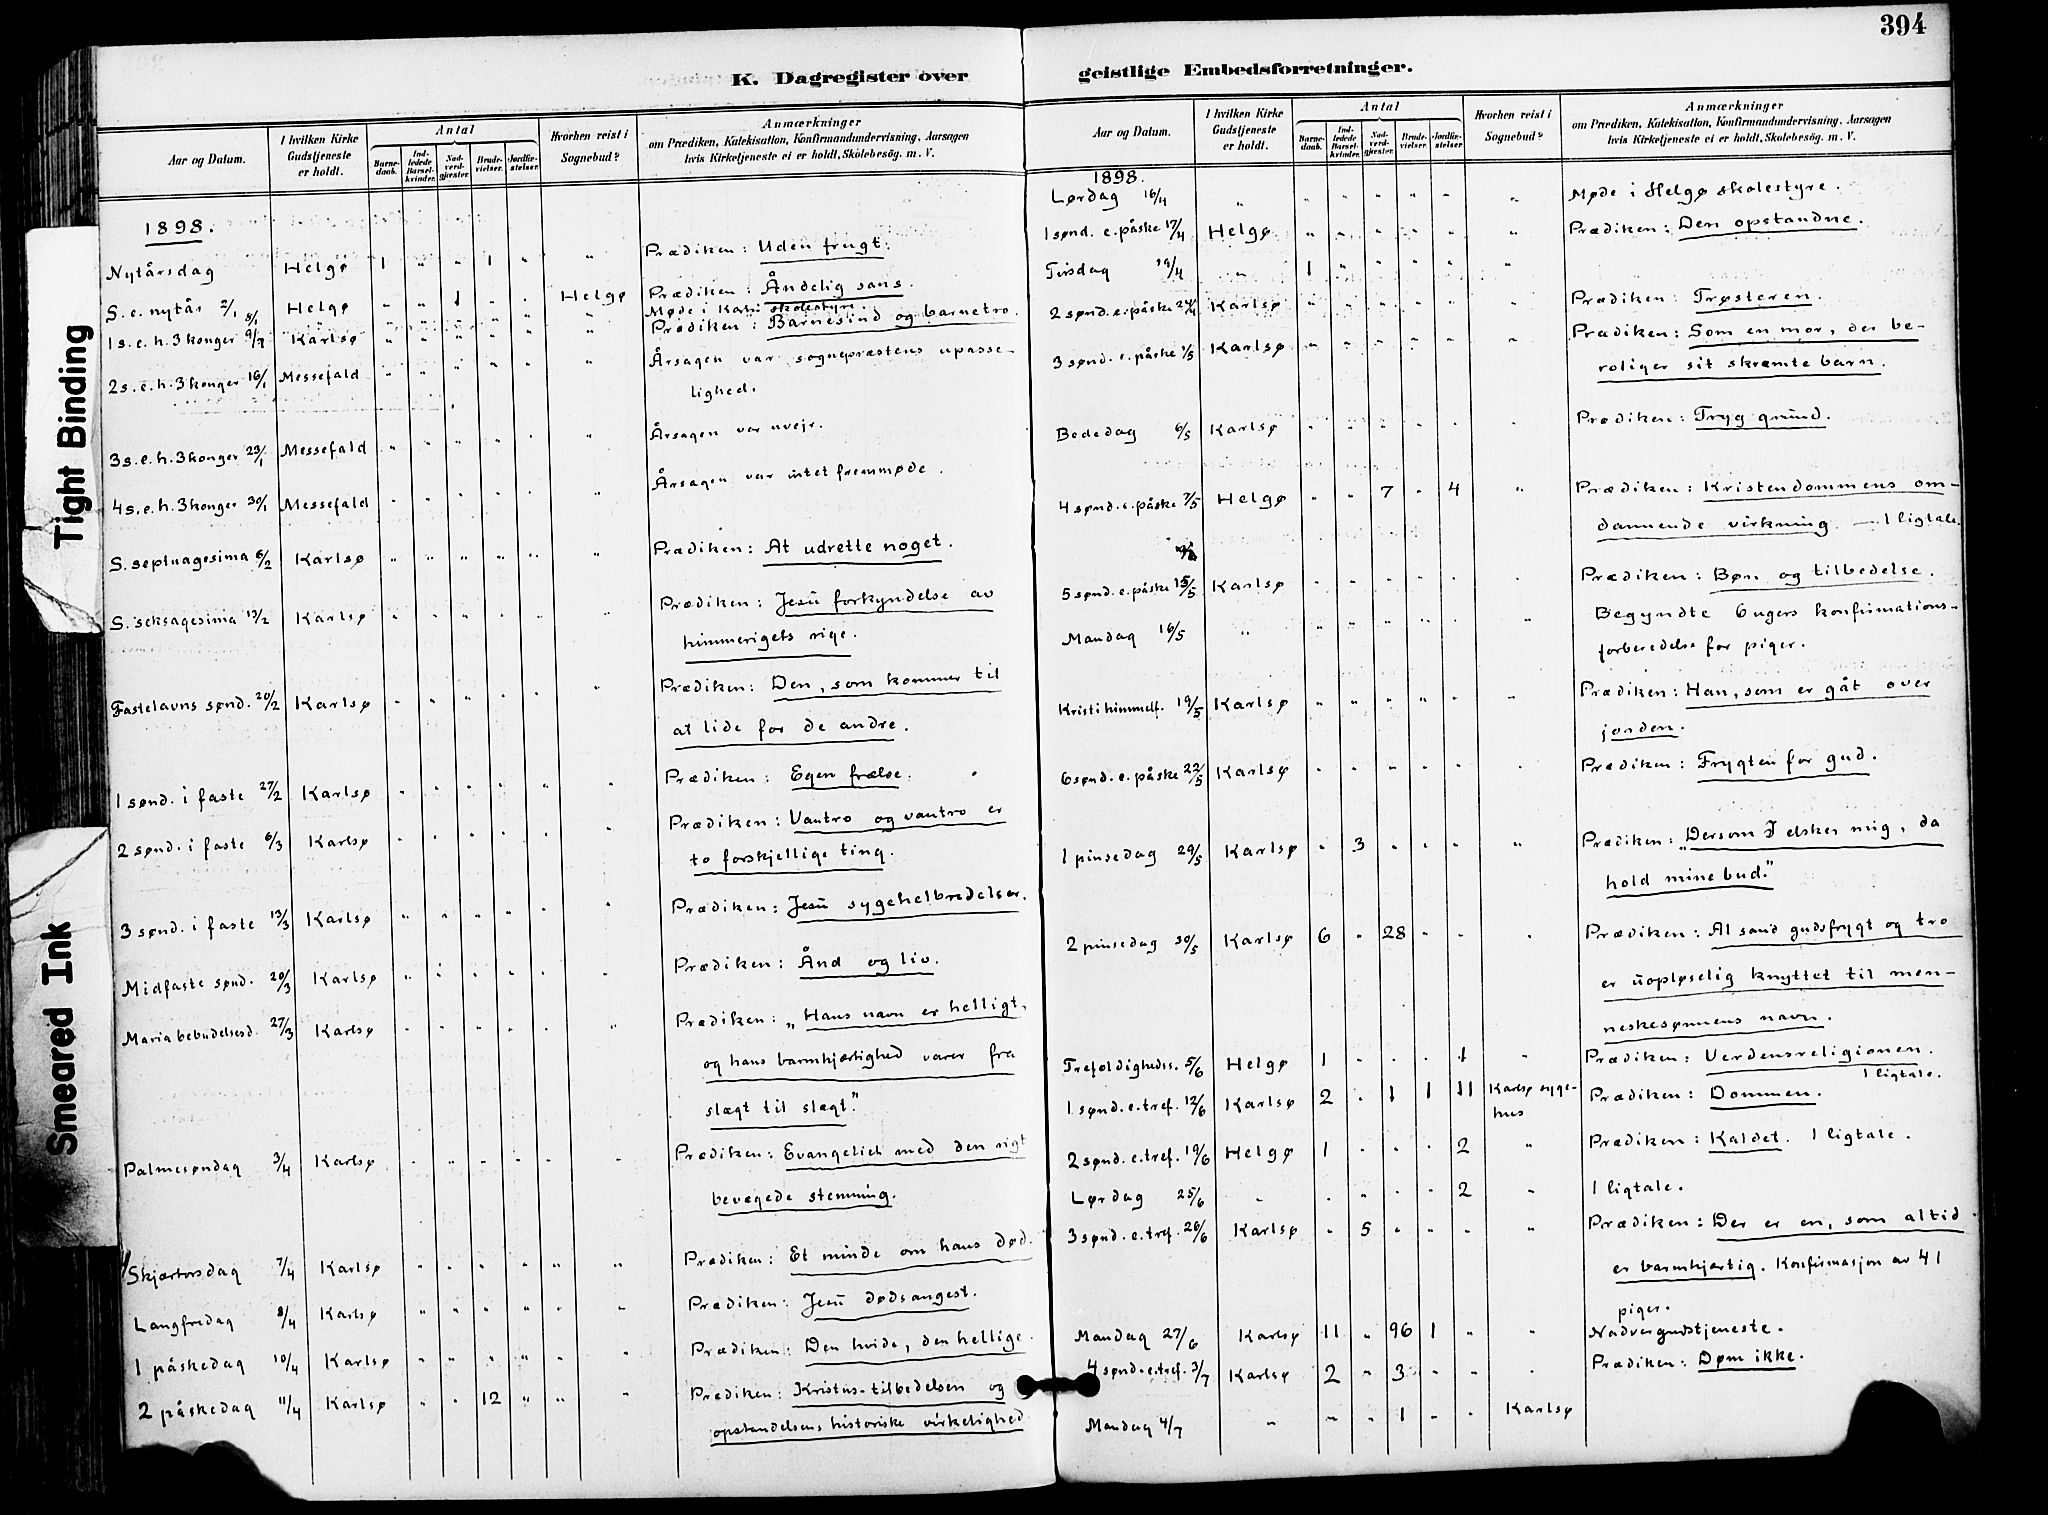 394
K. Dagregister over geistlige Embedsforretninger.
Tight Binding
Smeared Ink
Aar og Datum. | I hvilken Kirke Gudstjeneste er holdt. | Antal | Barnedaab. | Indledede Barselkvinder. | Nadverdgjæster. | Brudevielser. | Jordfæstelser. | Hvorhen reist i Sognebud? | Anmærkninger om Prædiken, Katekisation, Konfirmandundervisning, Aarsagen hvis Kirketjeneste ei er holdt, Skolebesög. m. V.
1898.
Nytårsdag Helgø 1 " " 1 " " Prædiken: Uden frugt.
S. e. nytår 2/1 Helgø " " 1 " " Helgø Prædiken: Åndelig sans.
8/1 " " " " " " Møde i Karlsø skolestyre.
1 s. e. h. 3 konger 9/1 Karlsø " " " " " " Prædiken: Barnesind og barnetro.
2 s. e. h. 3 konger 16/1 Messefald " " " " " " Årsagen var sognepræstens upasse-
lighed.
3 s. e. h. 3 konger 23/1 Messefald " " " " " " Årsagen var uvejr.
4 s. e. h. 3 konger 30/1 Messefald " " " " " " Årsagen var intet fremmøde.
S. septuagesima 6/2 Karlsø " " " " " " Prædiken: At udrette noget.
S. seksagesima 13/2 Karlsø " " " " " " Prædiken: Jesu forkyndelse av
himmerigets rige.
Fastelavns sønd. 20/2 Karlsø " " " " " " Prædiken: Den, som kommer til
at lide for de andre.
1 sønd. i faste 27/2 Karlsø " " " " " " Prædiken: Egen frælse.
2 sønd. i faste 6/3 Karlsø " " " " " " Prædiken: Vantro og vantro er
to forskjellige ting.
3 sønd. i faste 13/3 Karlsø " " " " " " Prædiken: Jesu sygehelbredelser.
Midfaste sønd. 20/3 Karlsø " " " " " " Prædiken: Ånd og liv.
Maria bebudelsesd. 27/3 Karlsø " " " " " " Prædiken: „Hans navn er helligt,
og hans barmhjærtighed varer fra
slægt til slægt."
Palmesøndag 3/4 Karlsø " " " " " " Prædiken: Evangeliet med den rigt
bevægede stemning.
Skjærtorsdag 7/4 Karlsø " " " " " " Prædiken: Et minde om hans død.
Langfredag 8/4 Karlsø " " " " " " Prædiken: Jesu dødsangest.
1 påskedag 10/4 Karlsø " " " " " " Prædiken: Den hvide, den hellige.
2 påskedag 11/4 Karlsø " " 12 " " " Prædiken: Kristus-tilbedelsen og
opstandelsens historiske virkelighed
Aar og Datum. | I hvilken Kirke Gudstjeneste er holdt. | Antal | Barnedaab. | Indledede Barselkvinder. | Nadverdgjæster. | Brudevielser. | Jordfæstelser. | Hvorhen reist i Sognebud? | Anmærkninger om Prædiken, Katekisation, Konfirmandundervisning, Aarsagen hvis Kirketjeneste ei er holdt, Skolebesög. m. V.
1898.
Lørdag 16/4 " " " " " " " Møde i Helgø skolestyre.
1 sønd. e. påske 17/4 Helgø " " " " " " Prædiken: Den opstandne.
Tirsdag 19/4 " 1 " " " " "
2 sønd. e. påske 24/4 Karlsø " " " " " " Prædiken: Trøsteren.
3 sønd. e. påske 1/5 Karlsø " " " " " " Prædiken: Som en mor, der be-
roliger sit skræmte barn.
Bededag 6/5 Karlsø " " " " " " Prædiken: Tryg grund.
4 sønd. e. påske 7/5 Helgø " " 7 " 4 " Prædiken: Kristendommens om-
dannende virkning. — 1 ligtale.
5 sønd. e. påske 15/5 Karlsø " " " " " " Prædiken: Bøn og tilbedelse.
Mandag 16/5 " " " " " " " Begyndte 6 ugers konfirmations-
forberedelse for piger.
Kristi himmelf. 19/5 Karlsø " " " " " " Prædiken: Han, som er gåt over
jorden.
6 sønd. e. påske 22/5 Karlsø " " " " " " Prædiken: Frygten for gud.
1 pinsedag 29/5 Karlsø " 3 " " " " Prædiken: „Dersom I elsker mig, da
hold mine bud."
2 pinsedag 30/5 Karlsø 6 " 28 " " " Prædiken: Al sand gudsfrygt og tro
er uopløselig knyttet til men-
neskesønnens navn.
Trefoldighedss. 5/6 Helgø 1 " " " 1 " Prædiken: Verdensreligionen.
1 ligtale.
1 sønd. e. tref. 12/6 Karlsø 2 " 1 1 11 Karlsø syge- Prædiken: Dommen.
hus
2 sønd. e. tref. 19/6 Helgø 1 " " " 2 " Prædiken: Kaldet. 1 ligtale.
Lørdag 25/6 " " " " " 2 " 1 ligtale.
3 sønd. e. tref. 26/6 Karlsø " 5 " " " " Prædiken: Der er en, som altid
er barmhjærtig. Konfirmasjon av 41
piger.
Mandag 27/6 Karlsø 11 " 96 1 " " Nadvergudstjeneste.
4 sønd. e. tref. 3/7 Karlsø 2 " 3 " " " Prædiken: Døm ikke.
Mandag 4/7 " " " 1 " " Karlsø